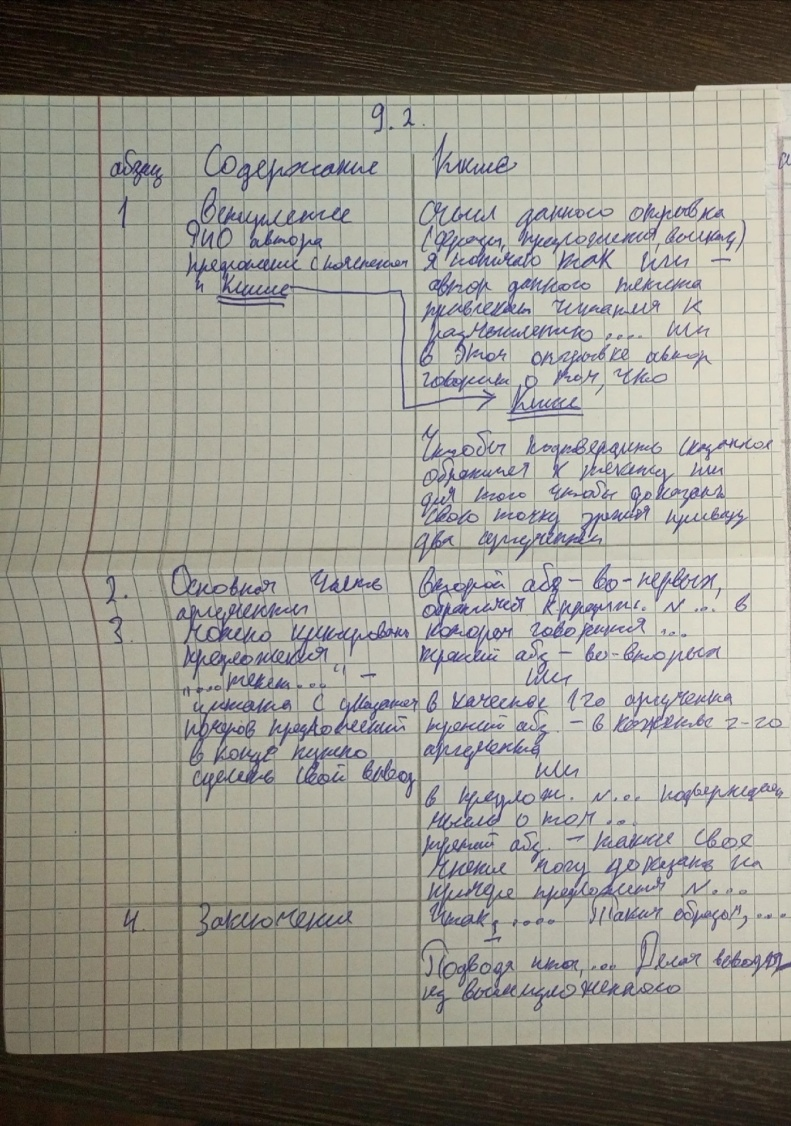 9.2.
абзац Содержание Клише
1 Вступление
ФИО автора
предложение с пояснением
и Клише
Смысл данного отрывка
(фразы, предложения, выска)
я понимаю так или –
автор данного текста
привлекает читателя к
размышлению .... или
в этом отрывке автор
говорит о том, что
Клише
Чтобы подтвердить сказанное
обратимся к тексту или
для того чтобы доказать
свою точку зрения приведу
два аргумента
2. Основная часть
аргументы
3. Можно цитировать
предложения
"... текст..." –
цитата с указанием
номеров предложений
в конце нужно
сделать свой вывод
Второй абз – во-первых,
обратимся к предлож. N... в
котором говорится ...
третий абз – во-вторых
или
в качестве 1го аргумента
третий абз. – в качестве 2-го
аргумента
или
в предлож. N... подтверждает
мысль о том ...
третий абз. – также свое
мнение могу доказать на
примере предложения N...
4. Заключение
Итак, .... Таким образом, ....
Подводя итог, ... Делая вывод
из вышеизложенного